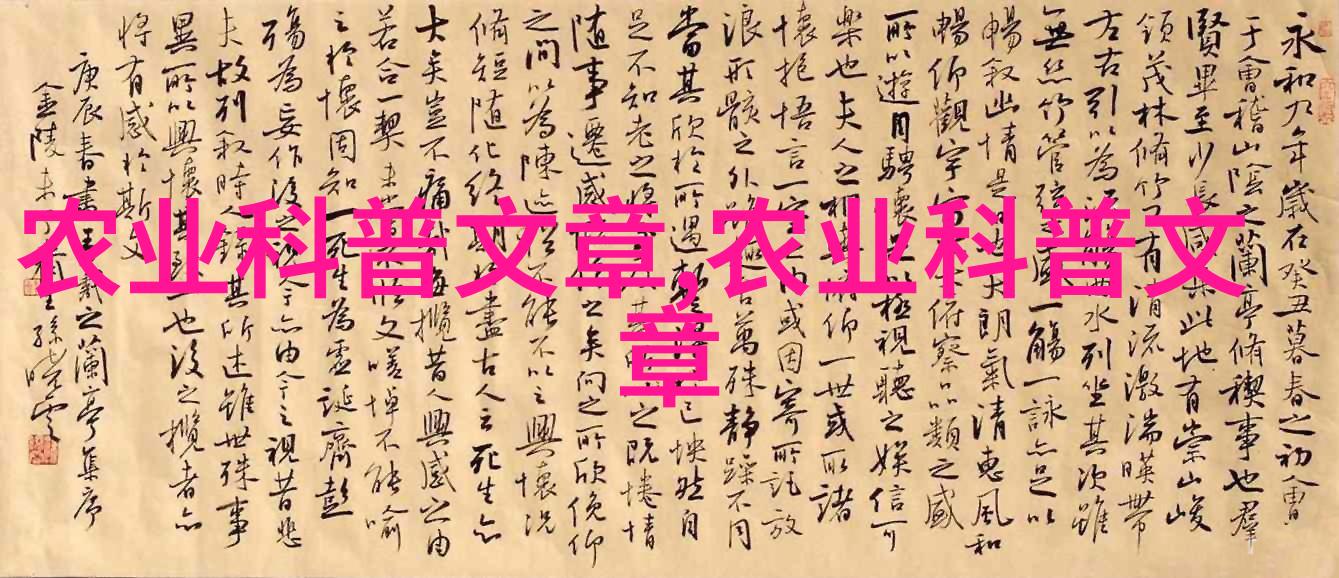 农业科普文章,农业科普文
章
永和九年歲在癸丑暮春之初會
于會稽山陰之蘭亭脩禊事也羣
賢畢至少長咸集此地有崇山峻
領茂林脩竹又有清流激湍暎帶
左右引以為流觴曲水列坐其次雖
無絲竹管弦之盛一觴一詠亦足以
暢敘幽情是日也天朗氣清惠風和
暢仰觀宇宙之大俯察品類之盛
所以遊目騁懷足以極視聽之娛信可
樂也夫人之相與俯仰一世或取諸
懷抱悟言一室之內或因寄所託放
浪形骸之外雖趣舍萬殊靜躁不同
當其欣於所遇暫得於己怏然自
足不知老之將至及其所之既惓情
隨事遷感慨係之矣向之所欣俛仰
之間以為陳迹猶不能不以之興懷況
脩短隨化終期於盡古人云死生亦
大矣豈不痛哉每攬昔人興感之由
若合一契未嘗不臨文嗟悼不能喻
之於懷固知一死生為虛誕齊彭
殤為妄作後之視今亦由今之視昔悲
夫故列敘時人錄其所述雖世殊事
異所以興懷其致一也後之攬者亦
將有感於斯文
庚辰春書王羲之蘭亭集序
金陵孫曉雲